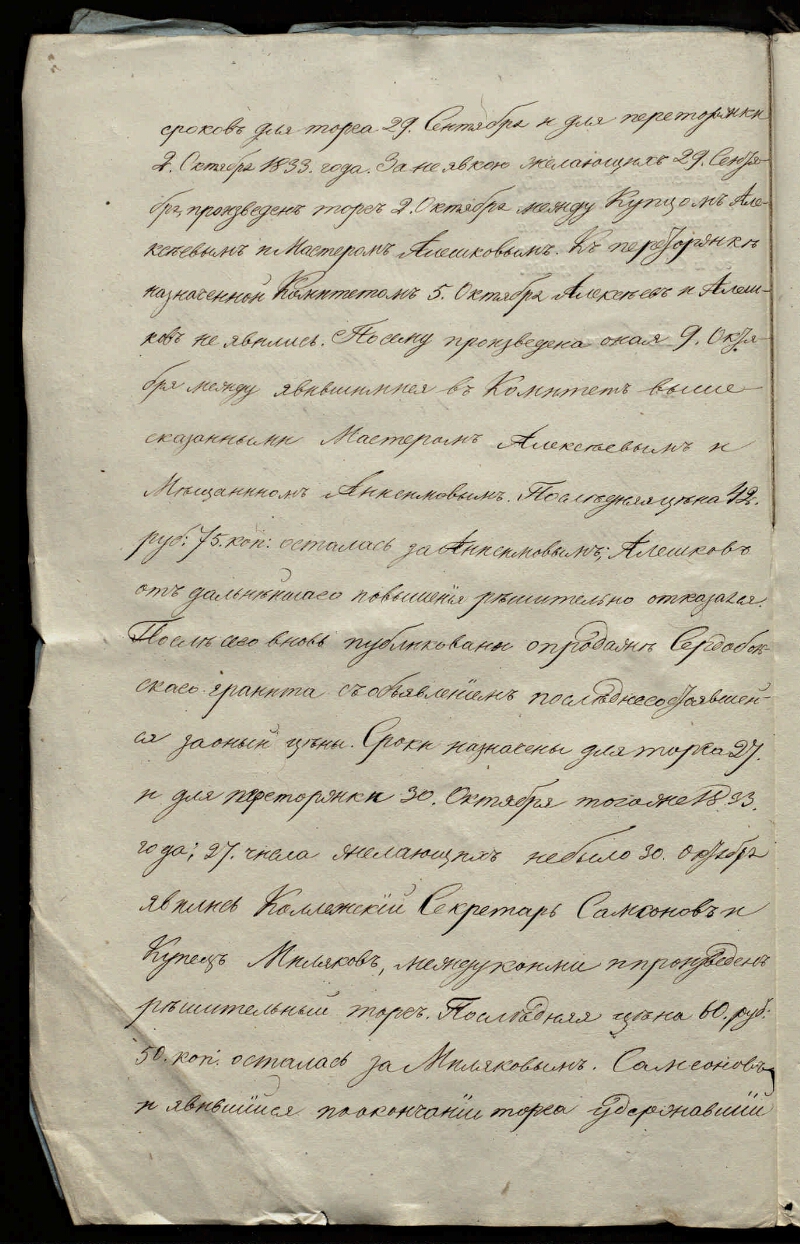 сроковъ для торга 29. Сентября и для переторжки
2. Октября 1833. года. За неявкою желающихъ 29. Сентя-
бря, произведенъ торгъ 2. Октября между Купцомъ Але-
ксѣевымъ и Мастеромъ Алешковымъ. Къ переторжкѣ
назначенной Комитетомъ 5. Октября Алексѣевъ и Алеш-
ковъ не явились. Посему произведена оная 9. Октя-
бря между явившимися въ Комитетъ выше
сказанными Мастеромъ Алексѣевымъ и
Мѣщаниномъ Анисимовымъ. Послѣдняя цѣна 42.
руб: 75. коп: осталась за Анисимовымъ; Алешковъ
отъ дальнѣйшаго повышенія рѣшительно отказался.
Послѣ сего вновь публиковано о продажѣ Сердоболь-
скаго гранита съ объявленіемъ послѣдне состоявшей-
ся за оный цѣны. Сроки назначены для торга 27.
и для переторжки 30. Октября того же 1833.
года; 27. числа желающихъ не было 30. Октября
явились Коллежскій Секретарь Самсоновъ и
Купецъ Миляковъ, между коими и произведенъ
рѣшительный торгъ. Послѣдняя цѣна 60. руб:
50. коп. осталась за Миляковымъ. Самсоновъ
и явившійся по окончаніи торга удержавшій